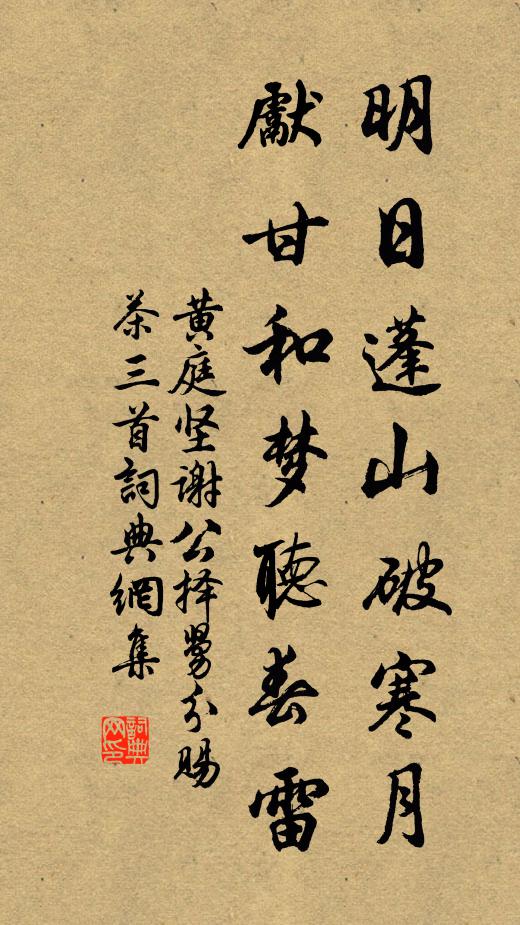 明日蓬山破寒月
獻甘和梦聽春雷
黄庭坚谢公择舅分赐
茶三首詞典網集
詞典
网印